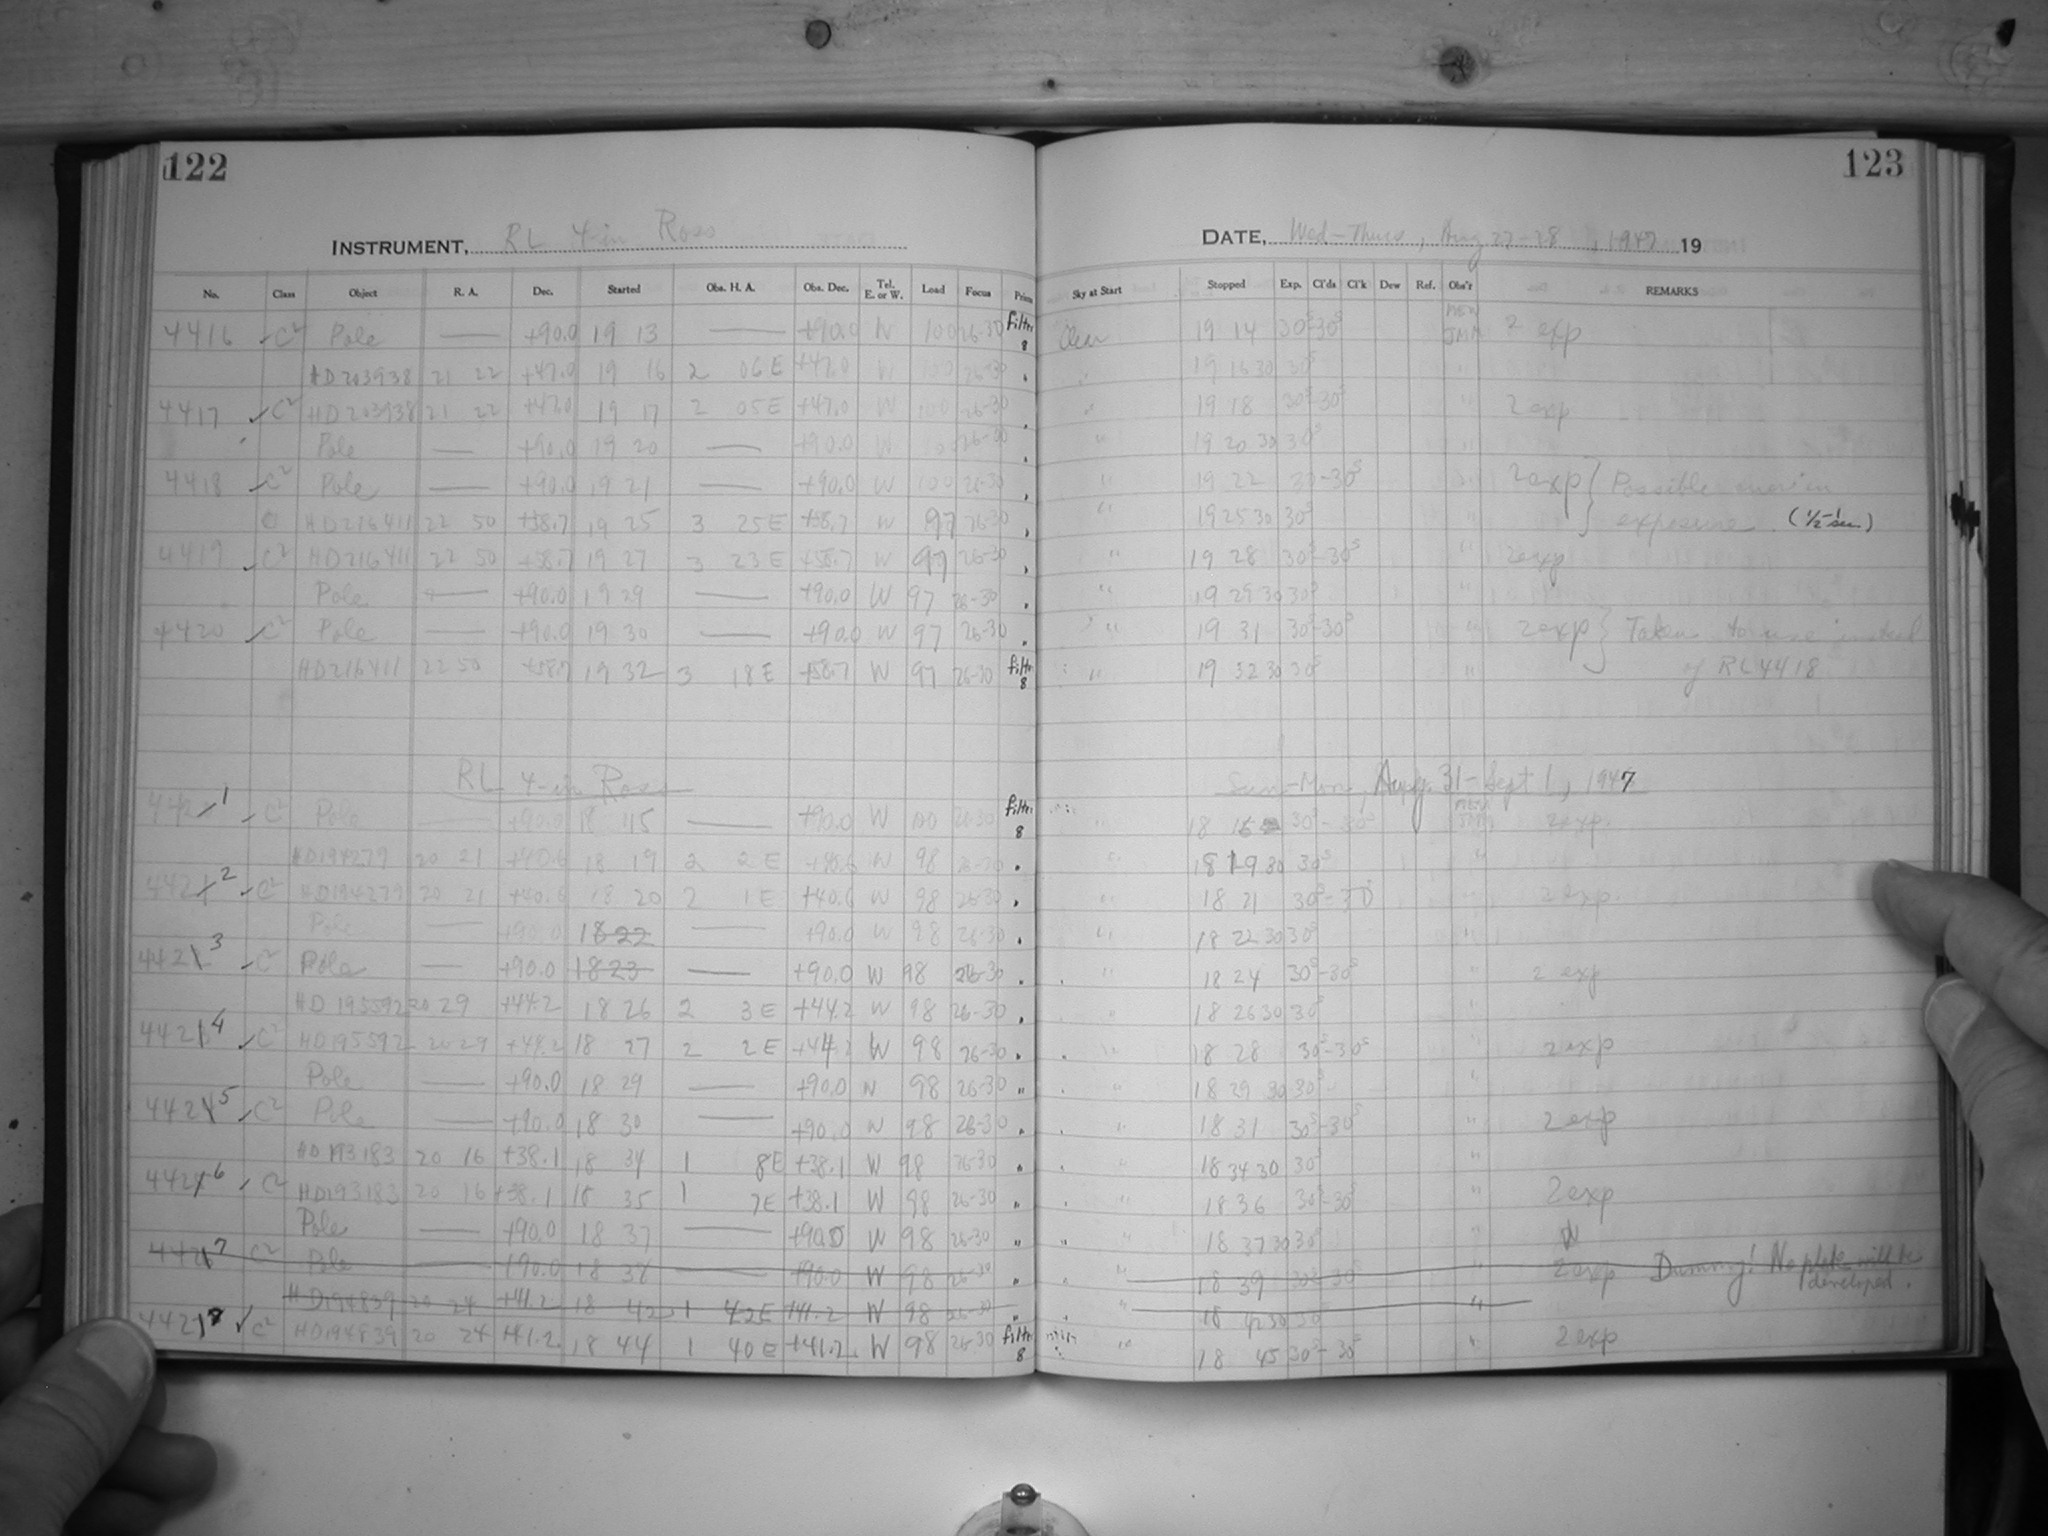 122
INSTRUMENT, RL 4-in Ross
No. Class Object R. A. Dec. Started Obs. H. A. Obs. Dec. Tel. E. or W. Load Focus Prism
4416 C2 Pole — +90.0 19 13 — +90.0 W 100 26-30 filter 8
HD203938 21 22 +47.0 19 16 2 06 E +47.0 W 100 26-30 "
4417 C2 HD203938 21 22 +47.0 19 17 2 05 E +47.0 W 100 26-30 "
Pole — +90.0 19 20 — +90.0 W 100 26-30 "
4418 C2 Pole — +90.0 19 21 — +90.0 W 100 26-30 "
HD216411 22 50 +58.7 19 25 3 25 E +58.7 W 97 26-30 "
4419 C2 HD216411 22 50 +58.7 19 27 3 23 E +58.7 W 97 26-30 "
Pole — +90.0 19 29 — +90.0 W 97 26-30 "
4420 C2 Pole — +90.0 19 30 — +90.0 W 97 26-30 "
HD216411 22 50 +58.7 19 32 3 18 E +58.7 W 97 26-30 filter 8
RL 4-in Ross
4421 C2 Pole — +90.0 18 15 — +90.0 W 100 26-30 filter 8
HD194279 20 21 +40.6 18 19 2 2 E +40.6 W 98 26-30 "
4422 C2 HD194279 20 21 +40.6 18 20 2 1 E +40.6 W 98 26-30 "
Pole — +90.0 18 22 — +90.0 W 98 26-30 "
4423 C2 Pole — +90.0 18 23 — +90.0 W 98 26-30 "
HD195592 20 29 +44.2 18 26 2 3 E +44.2 W 98 26-30 "
4424 C2 HD195592 20 29 +44.2 18 27 2 2 E +44.2 W 98 26-30 "
Pole — +90.0 18 29 — +90.0 W 98 26-30 "
4425 C2 Pole — +90.0 18 30 — +90.0 W 98 26-30 "
HD193183 20 16 +38.1 18 34 1 8 E +38.1 W 98 26-30 "
4426 C2 HD193183 20 16 +38.1 18 35 1 7 E +38.1 W 98 26-30 "
Pole — +90.0 18 37 — +90.0 W 98 26-30 "
C2 Pole — +90.0 18 38 — +90.0 W 98 26-30 "
HD194839 20 24 +41.2 18 42 1 42 E +41.2 W 98 26-30 "
C2 HD194839 20 24 +41.2 18 44 1 40 E +41.2 W 98 26-30 filter 8
123
DATE, Wed-Thurs, Aug 27-28, 1947 19
Sky at Start Stopped Exp. Cl'ds Cl'k Dew Ref. Obs'r REMARKS
Clear 19 14 30s-30s JMM 2 exp
" 19 16 30 30s "
" 19 18 30s-30s " 2 exp
" 19 20 30 30s "
" 19 22 30-30s " 2 exp } Possible error in
" 19 25 30 30s " exposure (1/2-1 sec)
" 19 28 30s-30s " 2 exp
" 19 29 30 30s "
" 19 31 30s-30s " 2 exp } Taken to use instead
" 19 32 30 30s " of RL4418
Sun-Mon, Aug. 31-Sept 1, 1947
18 16 30s-30s 2 exp.
" 18 19 30 30s "
" 18 21 30s-30 2 exp.
" 18 22 30 30s "
" 18 24 30s-30s " 2 exp
" 18 26 30 30s "
" 18 28 30s-30s " 2 exp
" 18 29 30 30s "
" 18 31 30s-30s " 2 exp
" 18 34 30 30s "
" 18 36 30s-30s " 2 exp
" 18 37 30 30s "
" 18 39 30s-30s " 2 exp Dummy! No plate will be
developed.
" 18 42 30 30 "
" 18 45 30s-30s " 2 exp